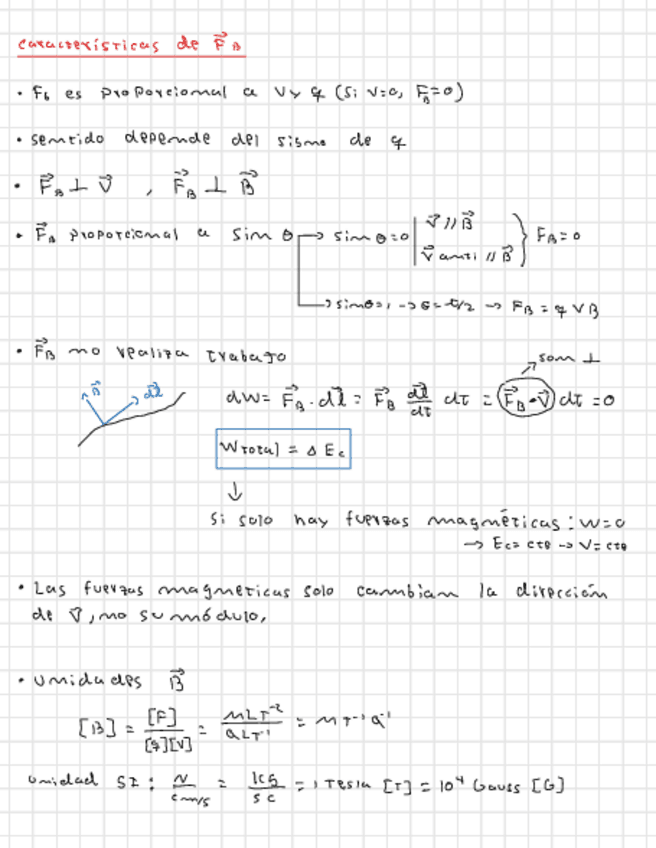 características de F⃗_B
• F_b es proporcional a V y q (si V=0, F_B=0)
• sentido depende del signo de q
• F⃗_B ⊥ V⃗ , F⃗_B ⊥ B⃗
• F⃗_B proporcional a sin θ → sin θ=0 | V⃗ // B⃗
V⃗ anti // B⃗ } F_B=0
→ sinθ=1 → θ=π/2 → F_B = q V B
• F⃗_B no realiza trabajo
→ son ⊥
B⃗ dl⃗ dW = F⃗_B · dl⃗ = F⃗_B dl⃗/dt dt = (F⃗_B · V⃗) dt = 0
W total = Δ E_c
↓
si solo hay fuerzas magnéticas : W=0
→ E_c= cte → V= cte
• Las fuerzas magneticas solo cambian la dirección
de V⃗, no su módulo.
• unidades B⃗
[B] = [F]/[q][V] = MLT⁻²/QLT⁻¹ = M T⁻¹ Q⁻¹
unidad SI : N/C m/s = kg/s C = 1 Tesla [T] = 10⁴ Gauss [G]